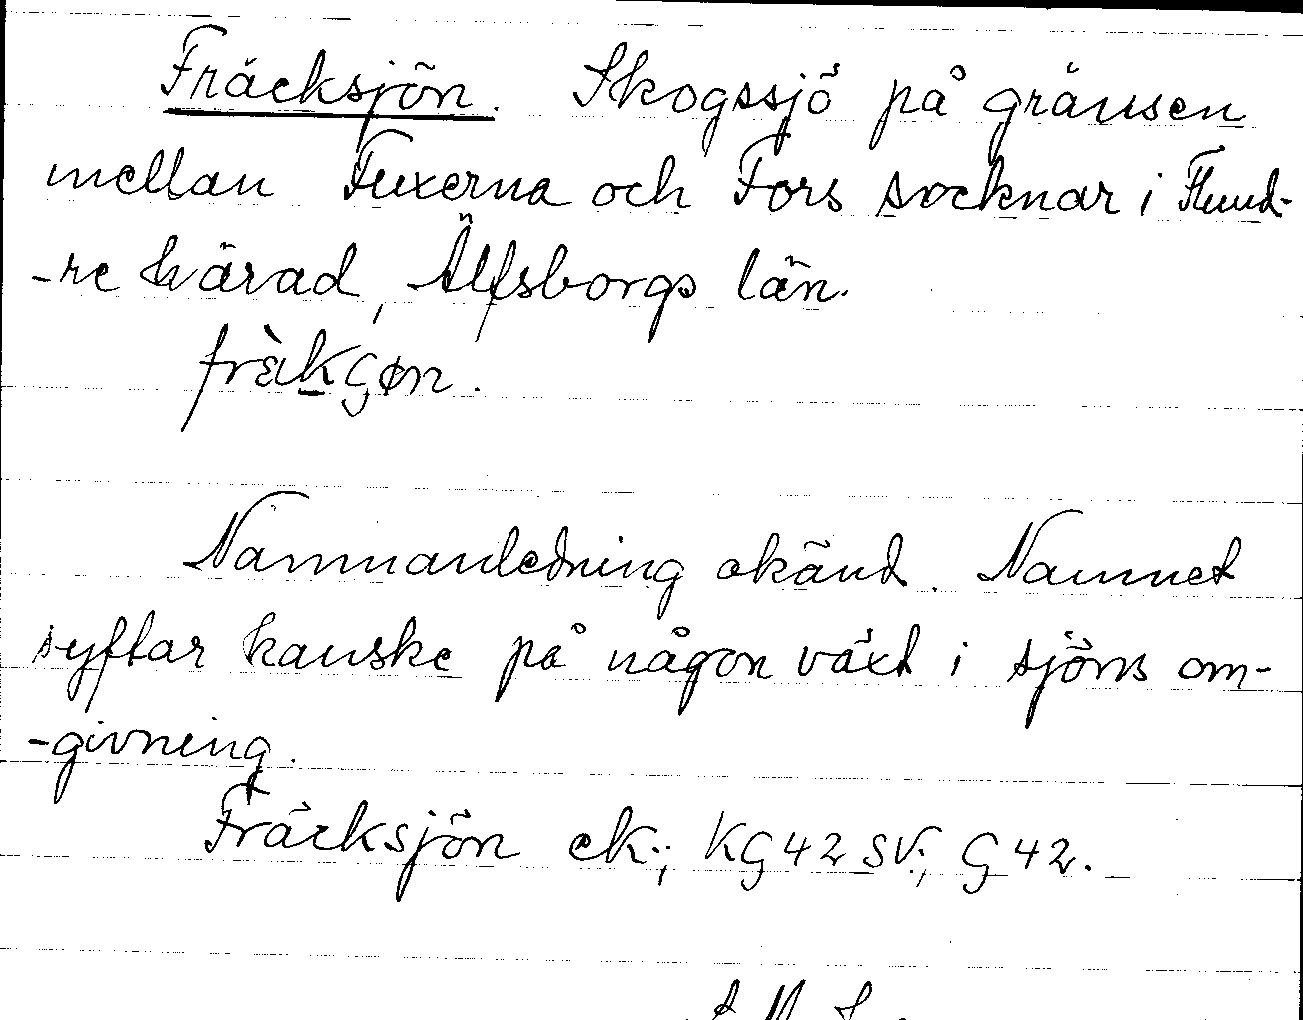 Fräcksjön. Skogssjö på gränsen
mellan Fuxerna och Fors socknar i Flund-
-re härad, Älfsborgs län.
Namnanledning okänd. Namnet
syftar kanske på någon växt i sjöns om-
-givning.
Fräcksjön ek.; KG 42 SV.; G 42.